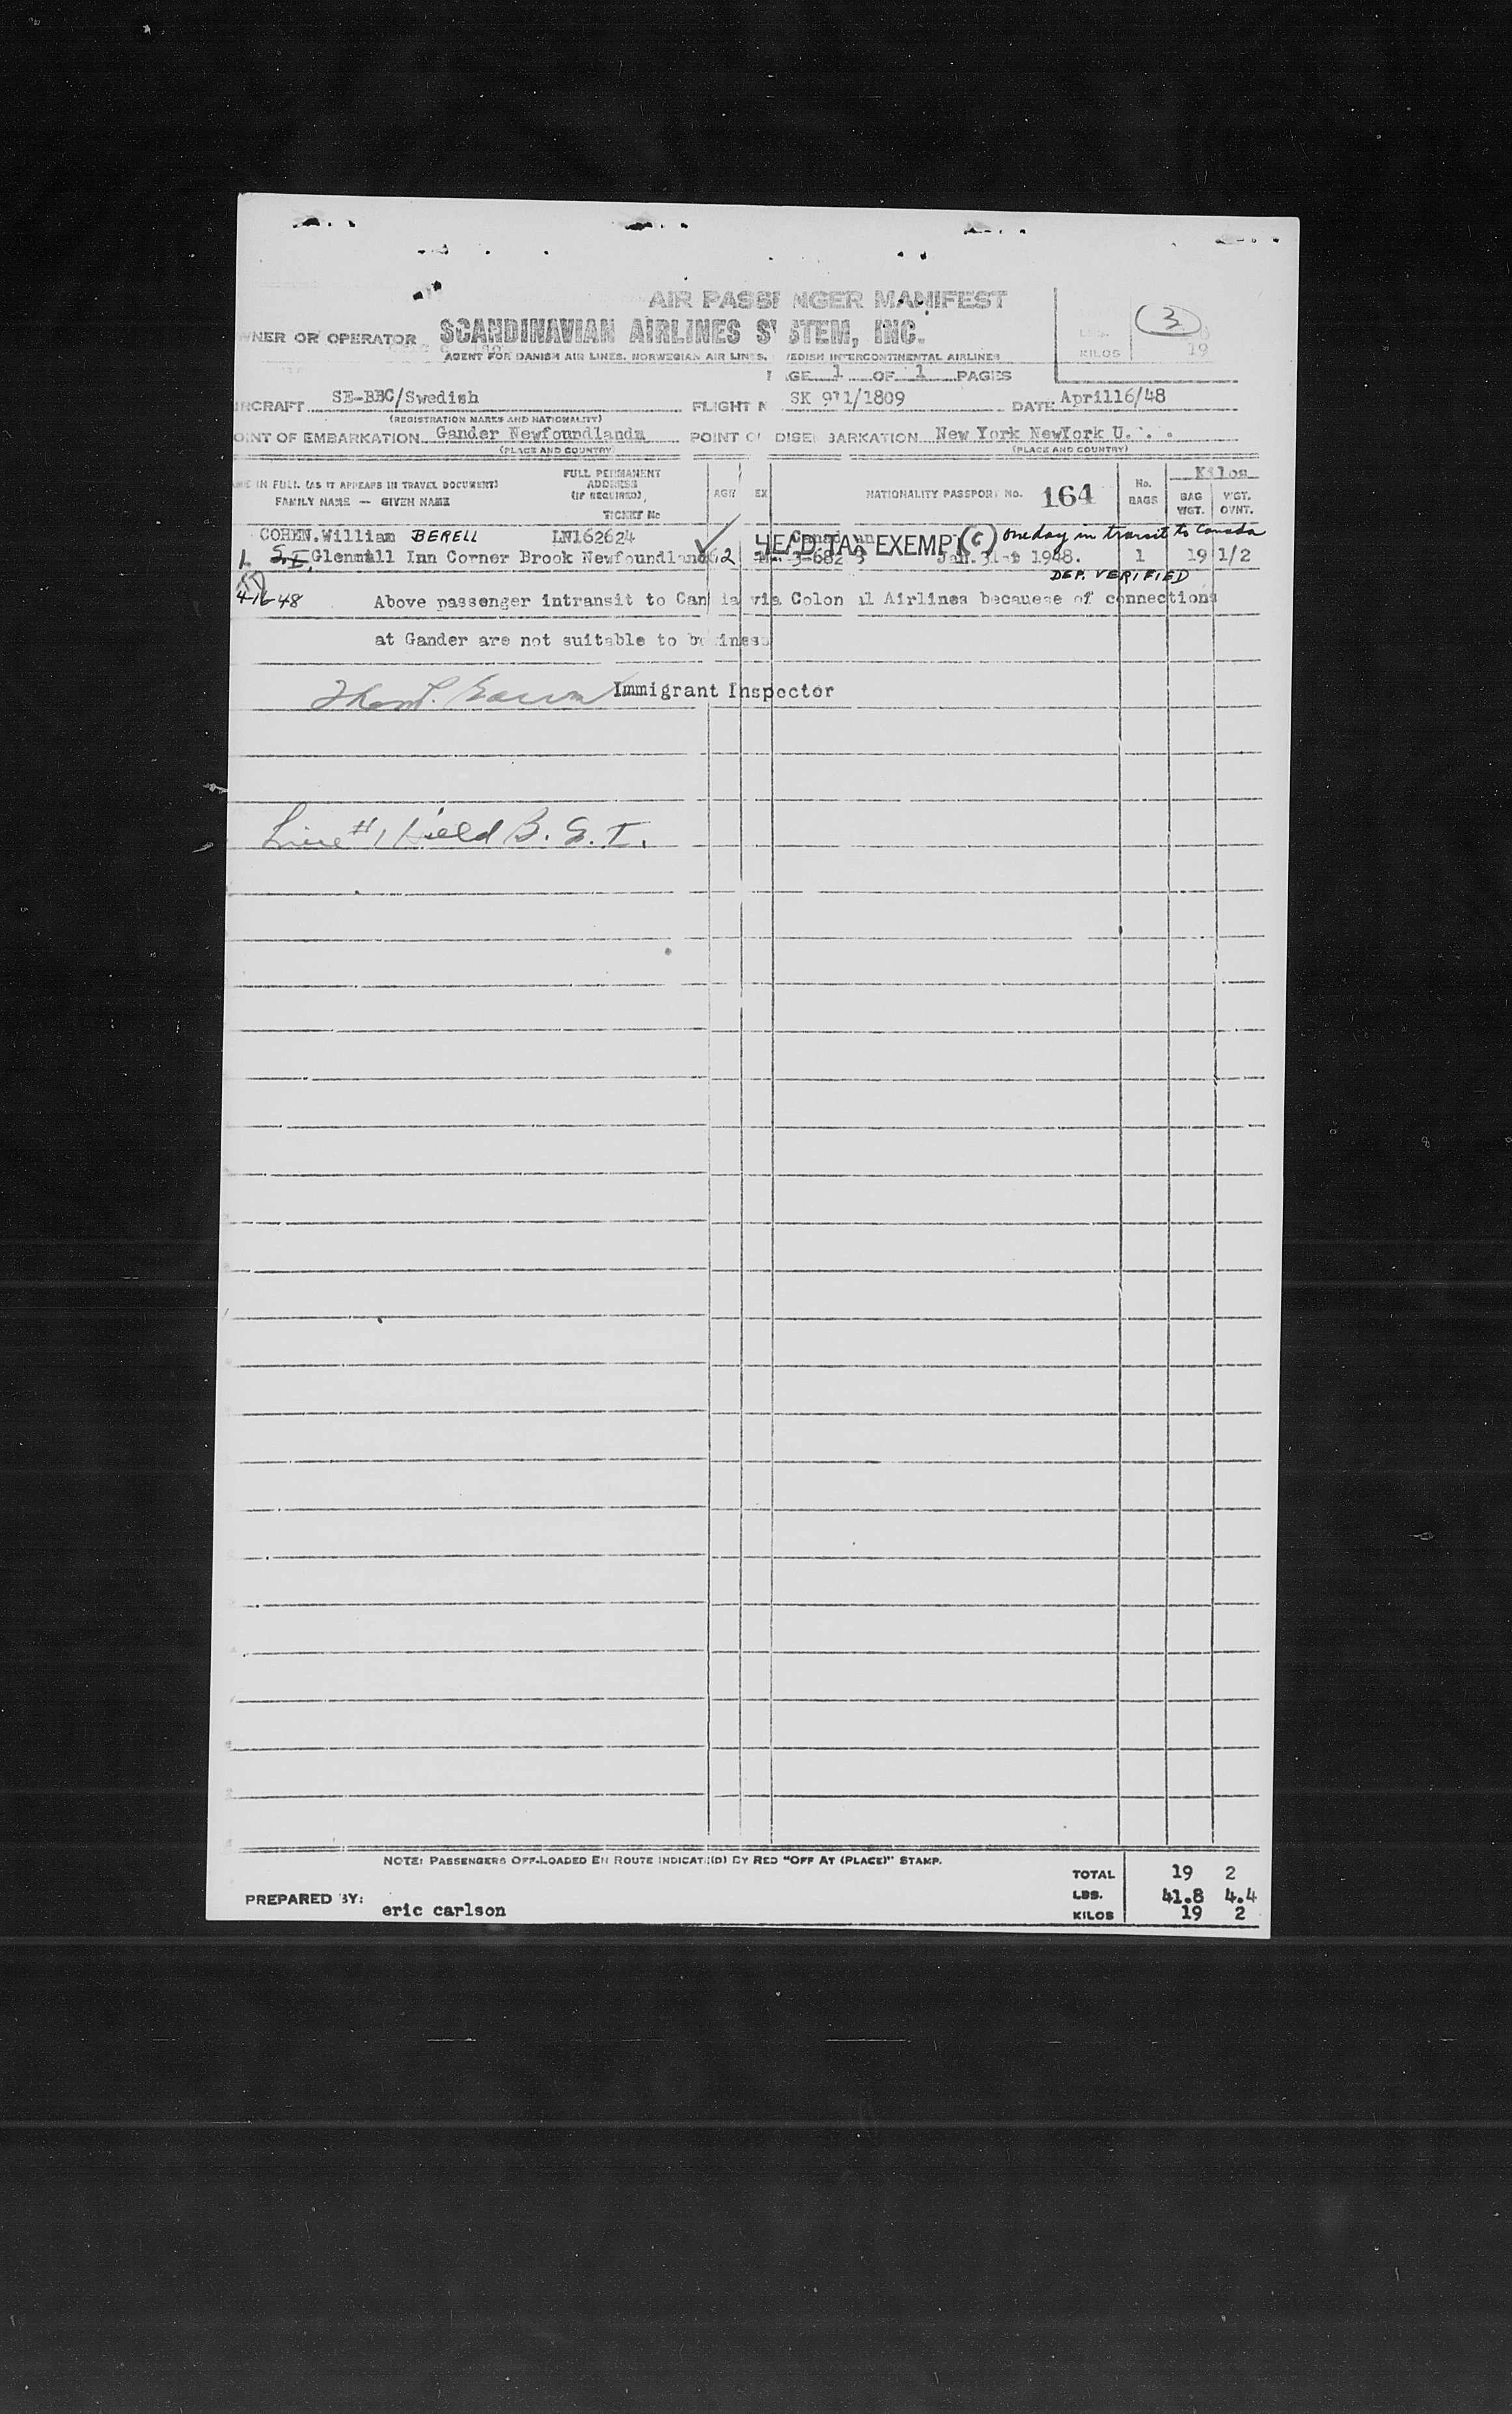 AIR PASSENGER MANIFEST
3
WNER OR OPERATOR SCANDINAVIAN AIRLINES SYSTEM, INC.
AGENT FOR DANISH AIR LINES. NORWEGIAN AIR LINES. EDISH INTERCONTINENTAL AIRLINES
KILOS 19
GE 1 OF 1 PAGES
IRCRAFT SE-BBC/Swedish FLIGHT N SK 911/1809 DATE April16/48
(REGISTRATION MARKS AND NATIONALITY)
OINT OF EMBARKATION Gander Newfoundlandm POINT O DISEMBARKATION New York NewYork U.
(PLACE AND COUNTRY) (PLACE AND COUNTRY)
ME IN FULL (AS IT APPEARS IN TRAVEL DOCUMENT)
FAMILY NAME — GIVEN NAME
FULL PERMANENT
ADDRESS
(IF REQUIRED),
TICKET No
AGE EX NATIONALITY PASSPORT No. 164
No.
BAGS
Kilos
BAG
WGT.
WGT.
OVNT.
COHEN.William BERELL LN162624 Canadian HEAD TAX EXEMPT (C) one day in transit to Canada
1. S.I. Glenmill Inn Corner Brook Newfoundland 62 M. 3-682 3 Jan. 31st 1948. 1 19 1/2
DEP. VERIFIED
4-16-48 Above passenger intransit to Can da via Colon al Airlines becauese of connections
at Gander are not suitable to business
Immigrant Inspector
Line #1 Held B. S. I.
NOTE: PASSENGERS OFF-LOADED EN ROUTE INDICAT(D) BY RED "OFF AT (PLACE)" STAMP.
TOTAL 19 2
LBS. 41.8 4.4
KILOS 19 2
PREPARED BY: eric carlson